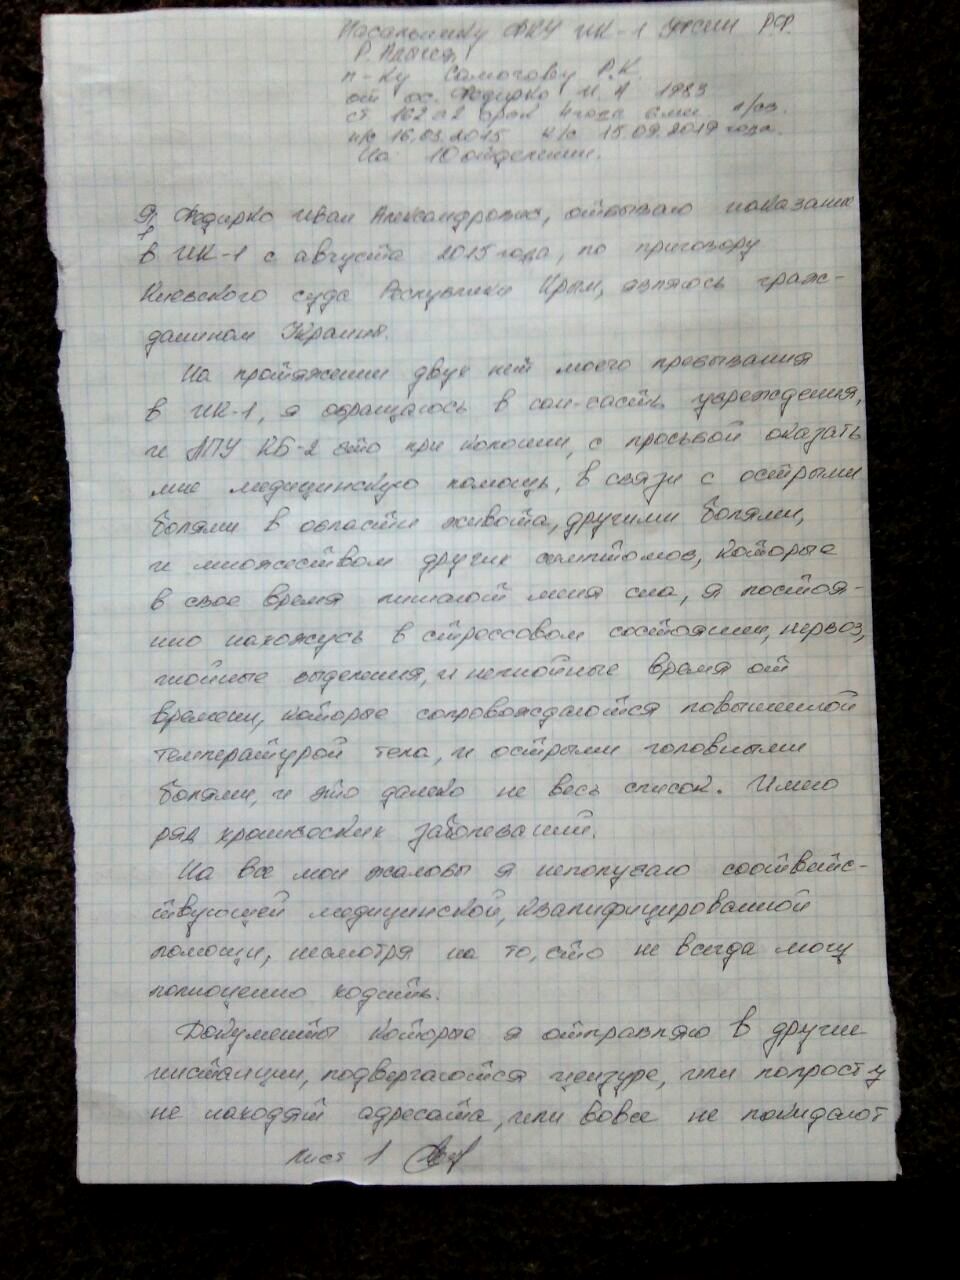 Начальнику ФКУ ИК-1 ФСИН РФ.
Р. Адыгея
п-ку Самогову Р.К.
от ос. Федирко И. А 1983
ст 162 ч2 срок 4 года 6 мес
н/с 16.03.2015 к/с 15.09.2019 года.
10 отделение.
Я, Федирко Иван Александрович, отбываю наказание
в ИК-1 с августа 2015 года, по приговору
Киевского суда Республики Крым, являюсь граж-
данином Украины.
На протяжении двух лет моего пребывания
в ИК-1, я обращаюсь в сан-часть учреждения,
и ЛПУ КБ-2 что при колонии, с просьбой оказать
мне медицинскую помощь, в связи с острыми
болями в области живота, другими болями,
и множеством других симптомов, которые
в свое время лишают меня сна, я постоя-
нно нахожусь в стрессовом состоянии, нервоз,
гнойные выделения, и негнойные время от
времени, которые сопровождаются повышенной
температурой тела, и острыми головными
болями, и это далеко не весь список. Имею
ряд хронических заболеваний.
На все мои жалобы я неполучаю соответс-
твующей медицинской, квалифицированной
помощи, несмотря на то, что не всегда могу
полноценно ходить.
Документы которые я отправляю в другие
инстанции, подвергаются цензуре, или попросту
не находят адресата, или вовсе не покидают
Лист 1